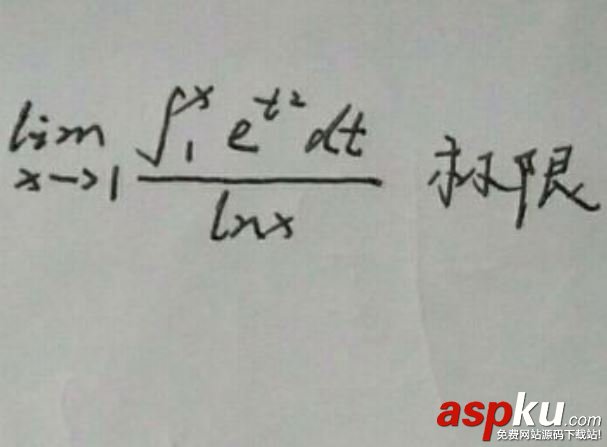 lim x→1 ∫₁ˣ e^{t²} dt / ln x 求极限
aspku.com
免费网站源码下载站!